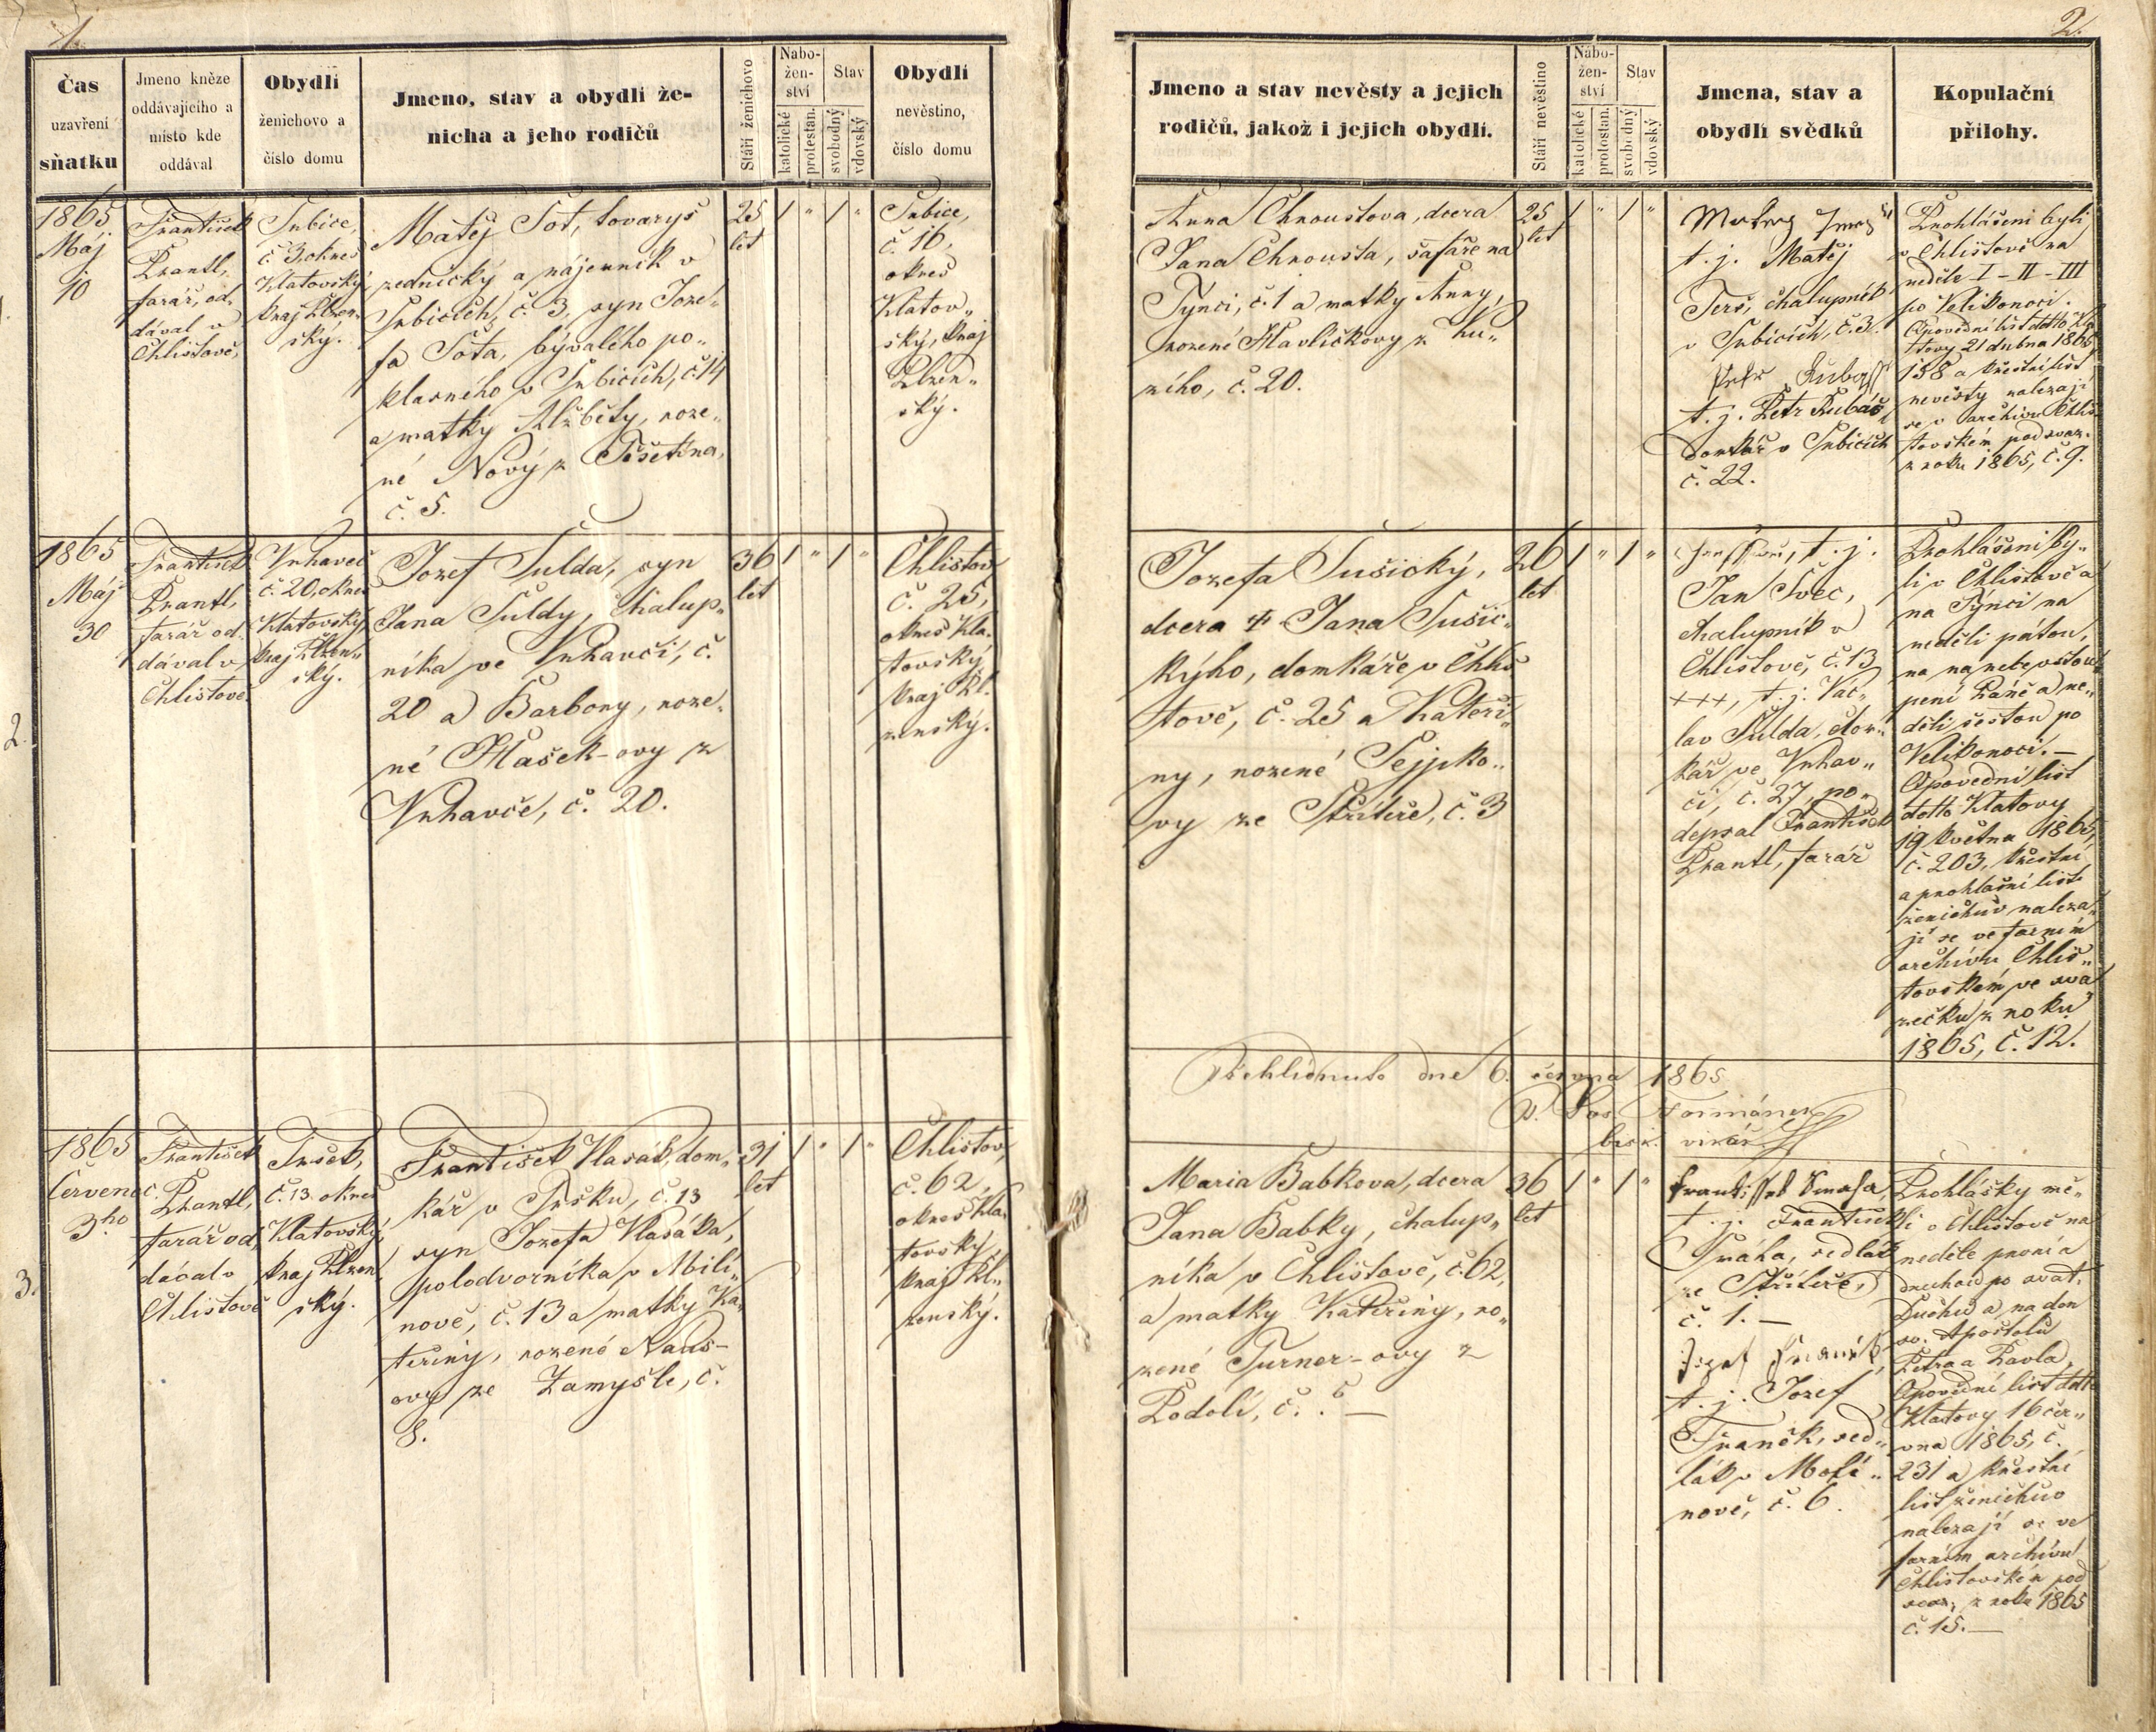 1.
Čas
uzavření
sňatku
Jmeno kněze
oddávajícího a
místo kde
oddával
Obydlí
ženichovo a
číslo domu
Jmeno, stav a obydlí že-
nicha a jeho rodičů
Stáří ženichovo
Nábo-
žen-
ství
katolické
protestan.
Stav
svobodný
vdovský
Obydlí
nevěstino,
číslo domu
1865
Máj
10
František
Prantl,
farář, od-
dával v
Chlistově,
Srbice,
č. 3, okres
Klatovský
kraj Plzen-
ský.
Matěj Šot, tovaryš
zednický a nájemník v
Srbicích, č. 3, syn Joze-
fa Šota, bývalého po-
klasného v Srbicích, č. 14
a matky Alžběty, roze-
né Nový z Těšetina,
č. 5.
25
let
1 " 1 "
Srbice,
č. 16,
okres
Klatov-
ský, kraj
Plzen-
ský.
2.
1865
Máj
30
František
Prantl,
farář od-
dával v
Chlistově
Vrhaveč
č. 20, okres
Klatovský,
kraj Plzen-
ský.
Jozef Šulda, syn
Jana Šuldy, chalup-
níka ve Vrhavči, č.
20 a Barbory, roze-
né Hlašek-ovy z
Vrhavče, č. 20.
36
let
1 " 1 "
Chlistov
č. 25,
okres Kla-
tovský
kraj Pl-
zenský.
3.
1865
Červenec
3ho
František
Prantl,
farář od-
dával v
Chlistově
Trsek,
č. 13 okres
Klatovský,
kraj Plzen-
ský.
František Vlasák, dom-
kář v Trsku, č. 13
syn Jozefa Vlasáka,
polodvorníka v Mili-
nově, č. 13 a matky Ka-
teřiny, rozené
ovy ze Zamyšle, č.
8.
31
let
1 " 1 "
Chlistov,
č. 62,
okres Kla-
tovský,
kraj Pl-
zenský.
2.
Jmeno a stav nevěsty a jejich
rodičů, jakož i jejich obydlí.
Stáří nevěstino
Nábo-
žen-
ství
katolické
protestan.
Stav
svobodný
vdovský
Jmena, stav a
obydlí svědků
Kopulační
přílohy.
Anna Chroustova, dcera
Jana Chrousta, šafáře na
Týnci, č. 1 a matky Anny,
rozené Havlíčkovy z Ku-
zího, č. 20.
25
let
1 " 1 "
t. j. Matěj
Terš, chalupník
v Srbicích, č. 3.
t. j. Petr Rubáš,
domkář v Srbicích
č. 22.
Prohlášeni byli
v Chlistově na
neděle I - II - III
po Velikonoci.
Opovědní list ddto Kla-
tovy 21 dubna 1865
158 a křestní list
nevěsty nalezají
se v archivu Chli-
stovském pod svaz.
z roku 1865, č. 9.
Jozefa Sušický,
dcera † Jana Sušic-
kýho, domkáře v Chli-
stově, č. 25 a Kateři-
ny, rozené Sejpko-
vy ze Střítěře, č. 3
26
let
1 " 1 "
t. j.
Jan Švec,
chalupník v
Chlistově, č. 13
+++, t. j. Vác-
lav Šulda, dom-
kář ve Vrhav-
či, č. 27, po-
depsal František
Prantl, farář
Prohlášeni by-
li v Chlistově a
na Týnci na
neděli pátou,
na na nebe vstou-
pení Páně a ne-
děli šestou po
Velikonoci. —
Opovědní list
ddto Klatovy
19 května 1865,
č. 203, křestní
a prohlašní list
ženichův naleza-
jí se ve farním
archivu Chlis-
tovském ve sva-
zečku z roku
1865, č. 12.
Přehlídnuto dne 6. června 1865
bisk. vikář
Maria Babkova, dcera
Jana Babky, chalup-
níka v Chlistově, č. 62,
a matky Kateřiny, ro-
zené Turner-ovy z
Podolí, č. 6. —
36
let
1 " 1 "
t. j. František
Smáha, sedlák
ze Střítěře,
č. 1. —
t. j. Jozef
Franěk, sed-
lák v
nově, č. 6.
Prohlášky mě-
li v Chlistově na
neděle první a
druhou po svat.
Duchu a na den
sv. Apoštolů
Petra a Pavla,
Opovědní list ddto
Klatovy 16 čer-
vna 1865, č.
231 a křestní
list ženichův
nalezají se ve
farním archivu
Chlistovském pod
svaz. z roku 1865
č. 15. —